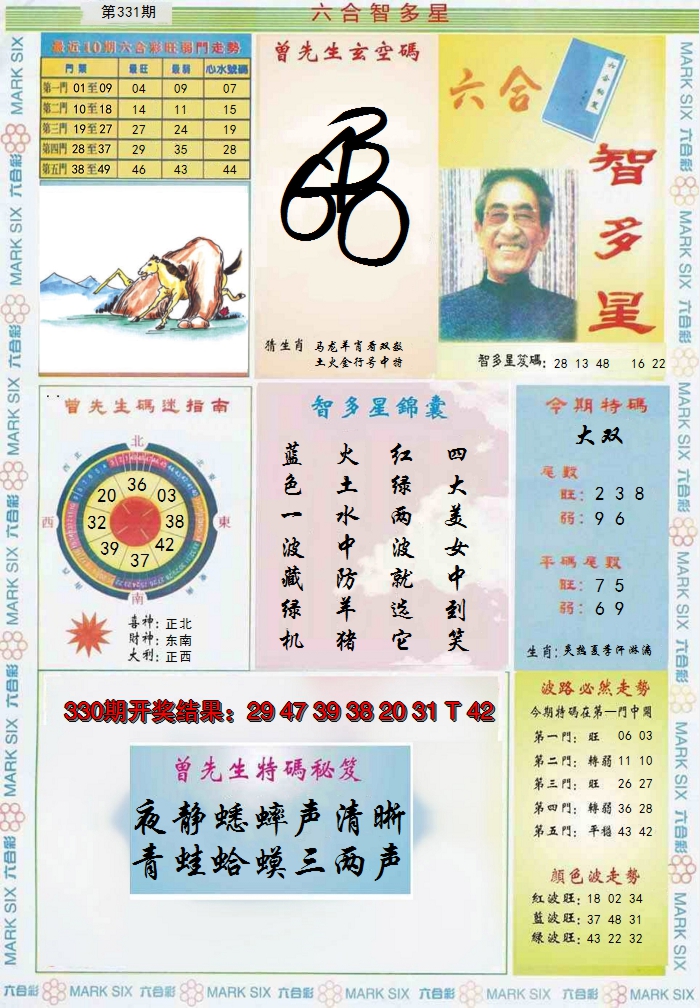 第331期
六合智多星
最近10期六合彩旺弱門走勢
門票 最旺 最弱 心水號碼
第一門 01至09 04 09 07
第二門 10至18 14 11 15
第三門 19至27 27 24 19
第四門 28至37 29 35 28
第五門 38至49 46 43 44
曾先生玄空碼
猜生肖 马龙羊肖看双数
土火金行号中特
六合
智多星
智多星笈碼: 28 13 48 16 22
曾先生碼迷指南
北
西
東
南
36
03
38
42
37
39
32
20
喜神: 正北
财神: 东南
大利: 正西
智多星錦囊
四大美女中到笑
红绿两波就选它
火土水中防羊猪
蓝色一波藏绿机
今期特碼
大双
尾數
旺: 2 3 8
弱: 9 6
平碼尾數
旺: 7 5
弱: 6 9
生肖: 炎热夏季汗淋漓
330期开奖结果：29 47 39 38 20 31 T 42
曾先生特碼秘笈
夜静蟋蟀声清晰
青蛙蛤蟆三两声
波路必然走勢
今期特碼在第一門中開
第一門: 旺 06 03
第二門: 轉弱 11 10
第三門: 旺 26 27
第四門: 轉弱 36 28
第五門: 平穩 43 42
顔色波走勢
紅波旺: 18 02 34
藍波旺: 37 48 31
綠波旺: 43 22 32
MARK SIX 六合彩 MARK SIX 六合彩 MARK SIX 六合彩 MARK SIX 六合彩 MARK SIX 六合彩